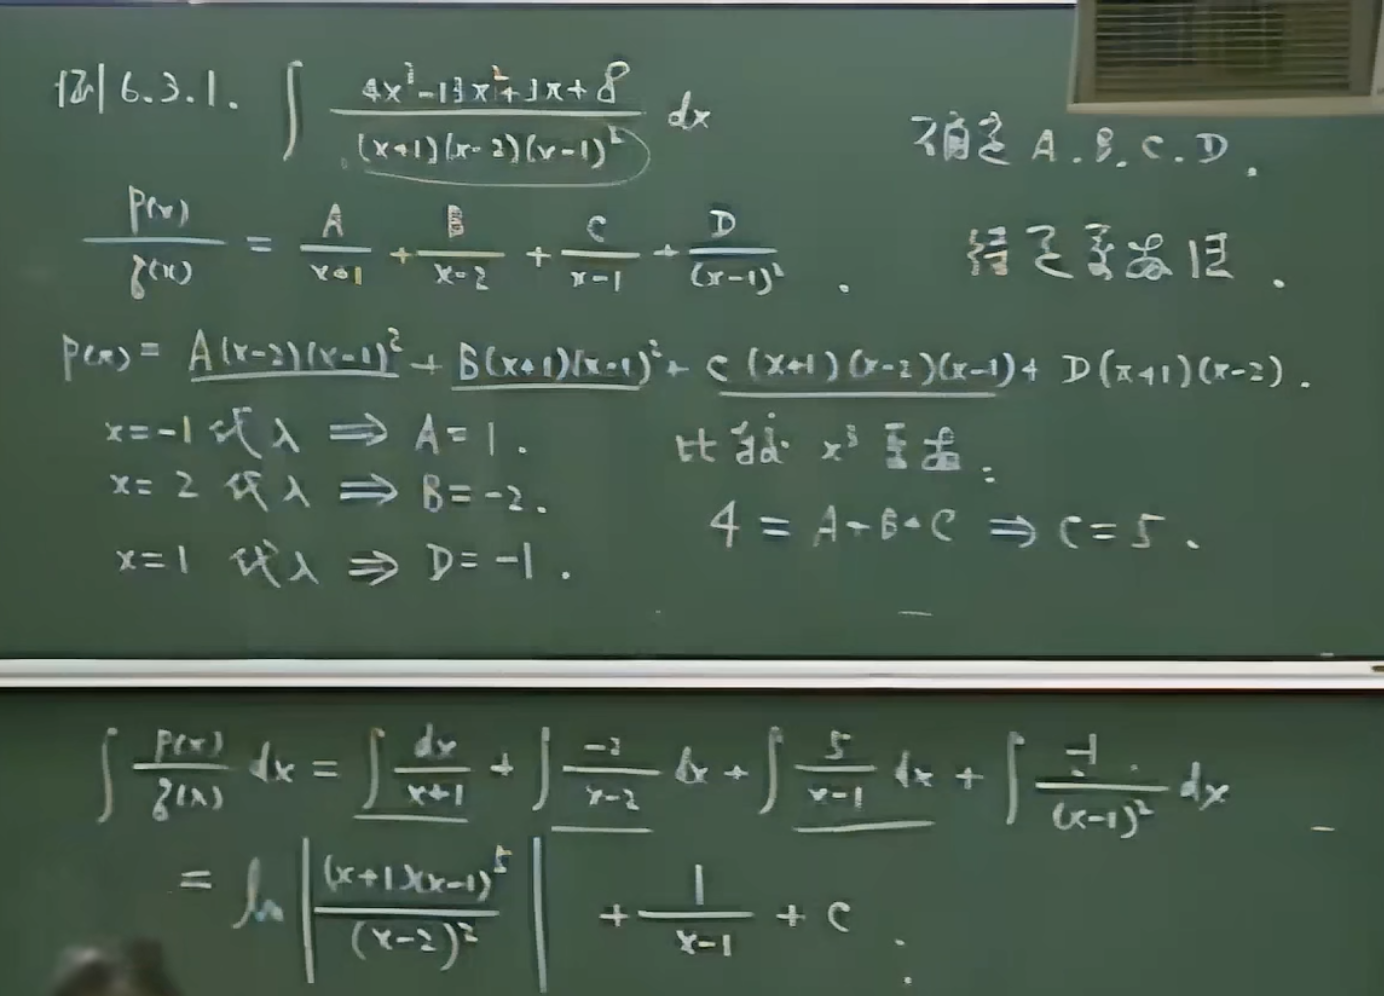 例 6.3.1. ∫ (4x³-13x²+3x+8)/((x+1)(x-2)(x-1)²) dx
确定 A.B.C.D.
p(x)/q(x) = A/(x+1) + B/(x-2) + C/(x-1) + D/(x-1)².
待定系数法.
p(x) = A(x-2)(x-1)² + B(x+1)(x-1)² + C(x+1)(x-2)(x-1) + D(x+1)(x-2).
x=-1 代入 ⇒ A=1.
x=2 代入 ⇒ B=-2.
x=1 代入 ⇒ D=-1.
比较 x³ 系数:
4 = A+B+C ⇒ C=5.
∫ p(x)/q(x) dx = ∫ dx/(x+1) + ∫ -2/(x-2) dx + ∫ 5/(x-1) dx + ∫ -1/(x-1)² dx
= ln |(x+1)(x-1)⁵/(x-2)²| + 1/(x-1) + C.